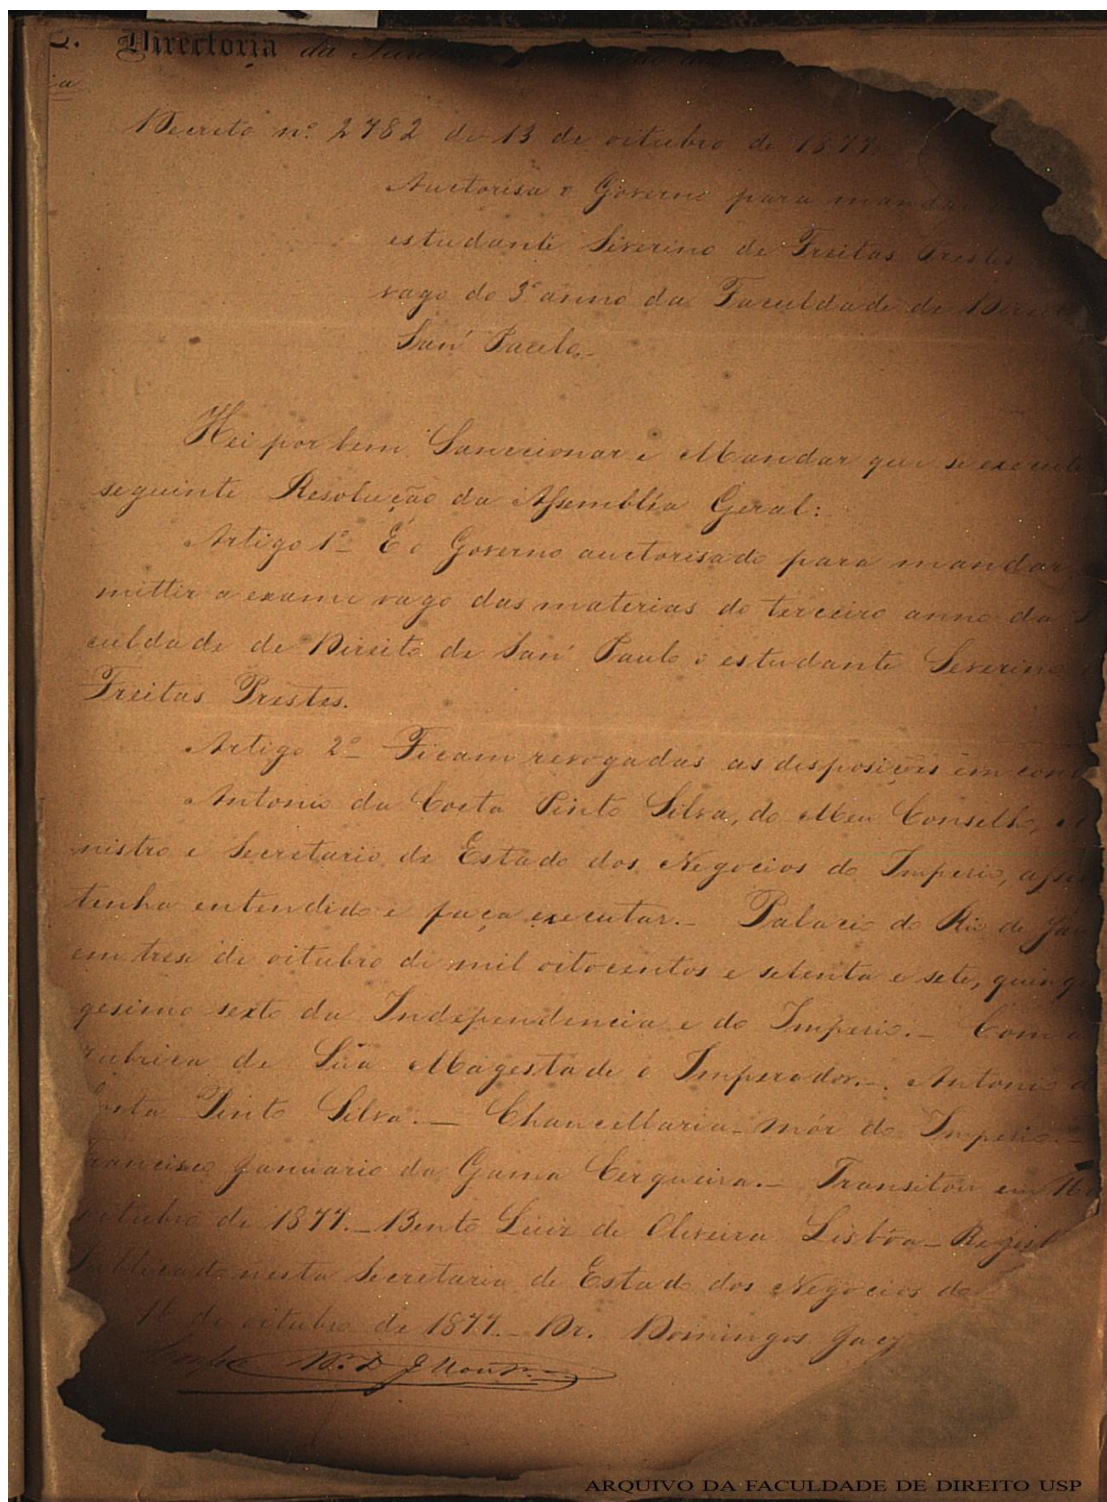 2.
Directoria da
ia
Decreto nº 2782 de 13 de oitubro de 1877.
Auctorisa o Governo para mandar
estudante Severino de Freitas Prestes
vago do 3º anno da Faculdade de Direito
San' Paulo.
Hei por bem Sanccionar e Mandar que se execute
seguinte Resolução da Assembléa Geral:
Artigo 1º É o Governo auctorisado para mandar
mittir a exame vago das materias do terceiro anno da
culdade de Direito de San' Paulo o estudante Severino
Freitas Prestes.
Artigo 2º Ficam revogadas as disposições em con
Antonio da Costa Pinto Silva, do Meu Conselho,
nistro e Secretario de Estado dos Negocios do Imperio, assi
tenha entendido e faça executar. Palacio do Rio de Jan
em trese de oitubro de mil oitocentos e setenta e sete, quinq
gesimo sexto da Independencia e do Imperio. Com a
rubrica de Sua Magestade o Imperador. Antonio d
Costa Pinto Silva. Chancellaria-mór do Imperio.
Francisco Januario da Gama Cerqueira. Transitou em 16
oitubro de 1877. Bento Luiz de Oliveira Lisbôa Regist
Publicado nesta Secretaria de Estado dos Negocios do
16 de oitubro de 1877. Dr. Domingos Jacy
ARQUIVO DA FACULDADE DE DIREITO USP